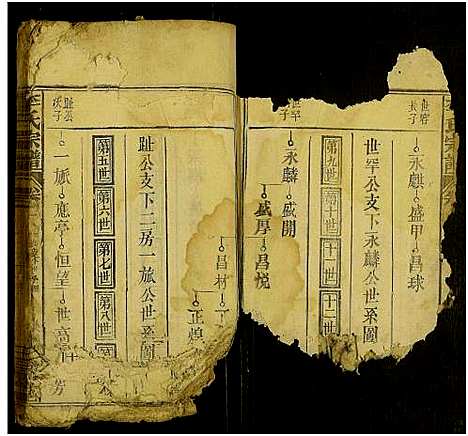 世罕
次子
永麒 盛甲 昌球
世罕公支下永麟公世系圖
第九世 第十世 十一世 十二世
永麟 盛開
盛厚 昌悦
昌材
正煌
趾公支下二房一旅公世系圖
第五世 第六世 第七世 第八世
趾公
次子
一旅 應亭 恒望 世
李氏宗譜 卷